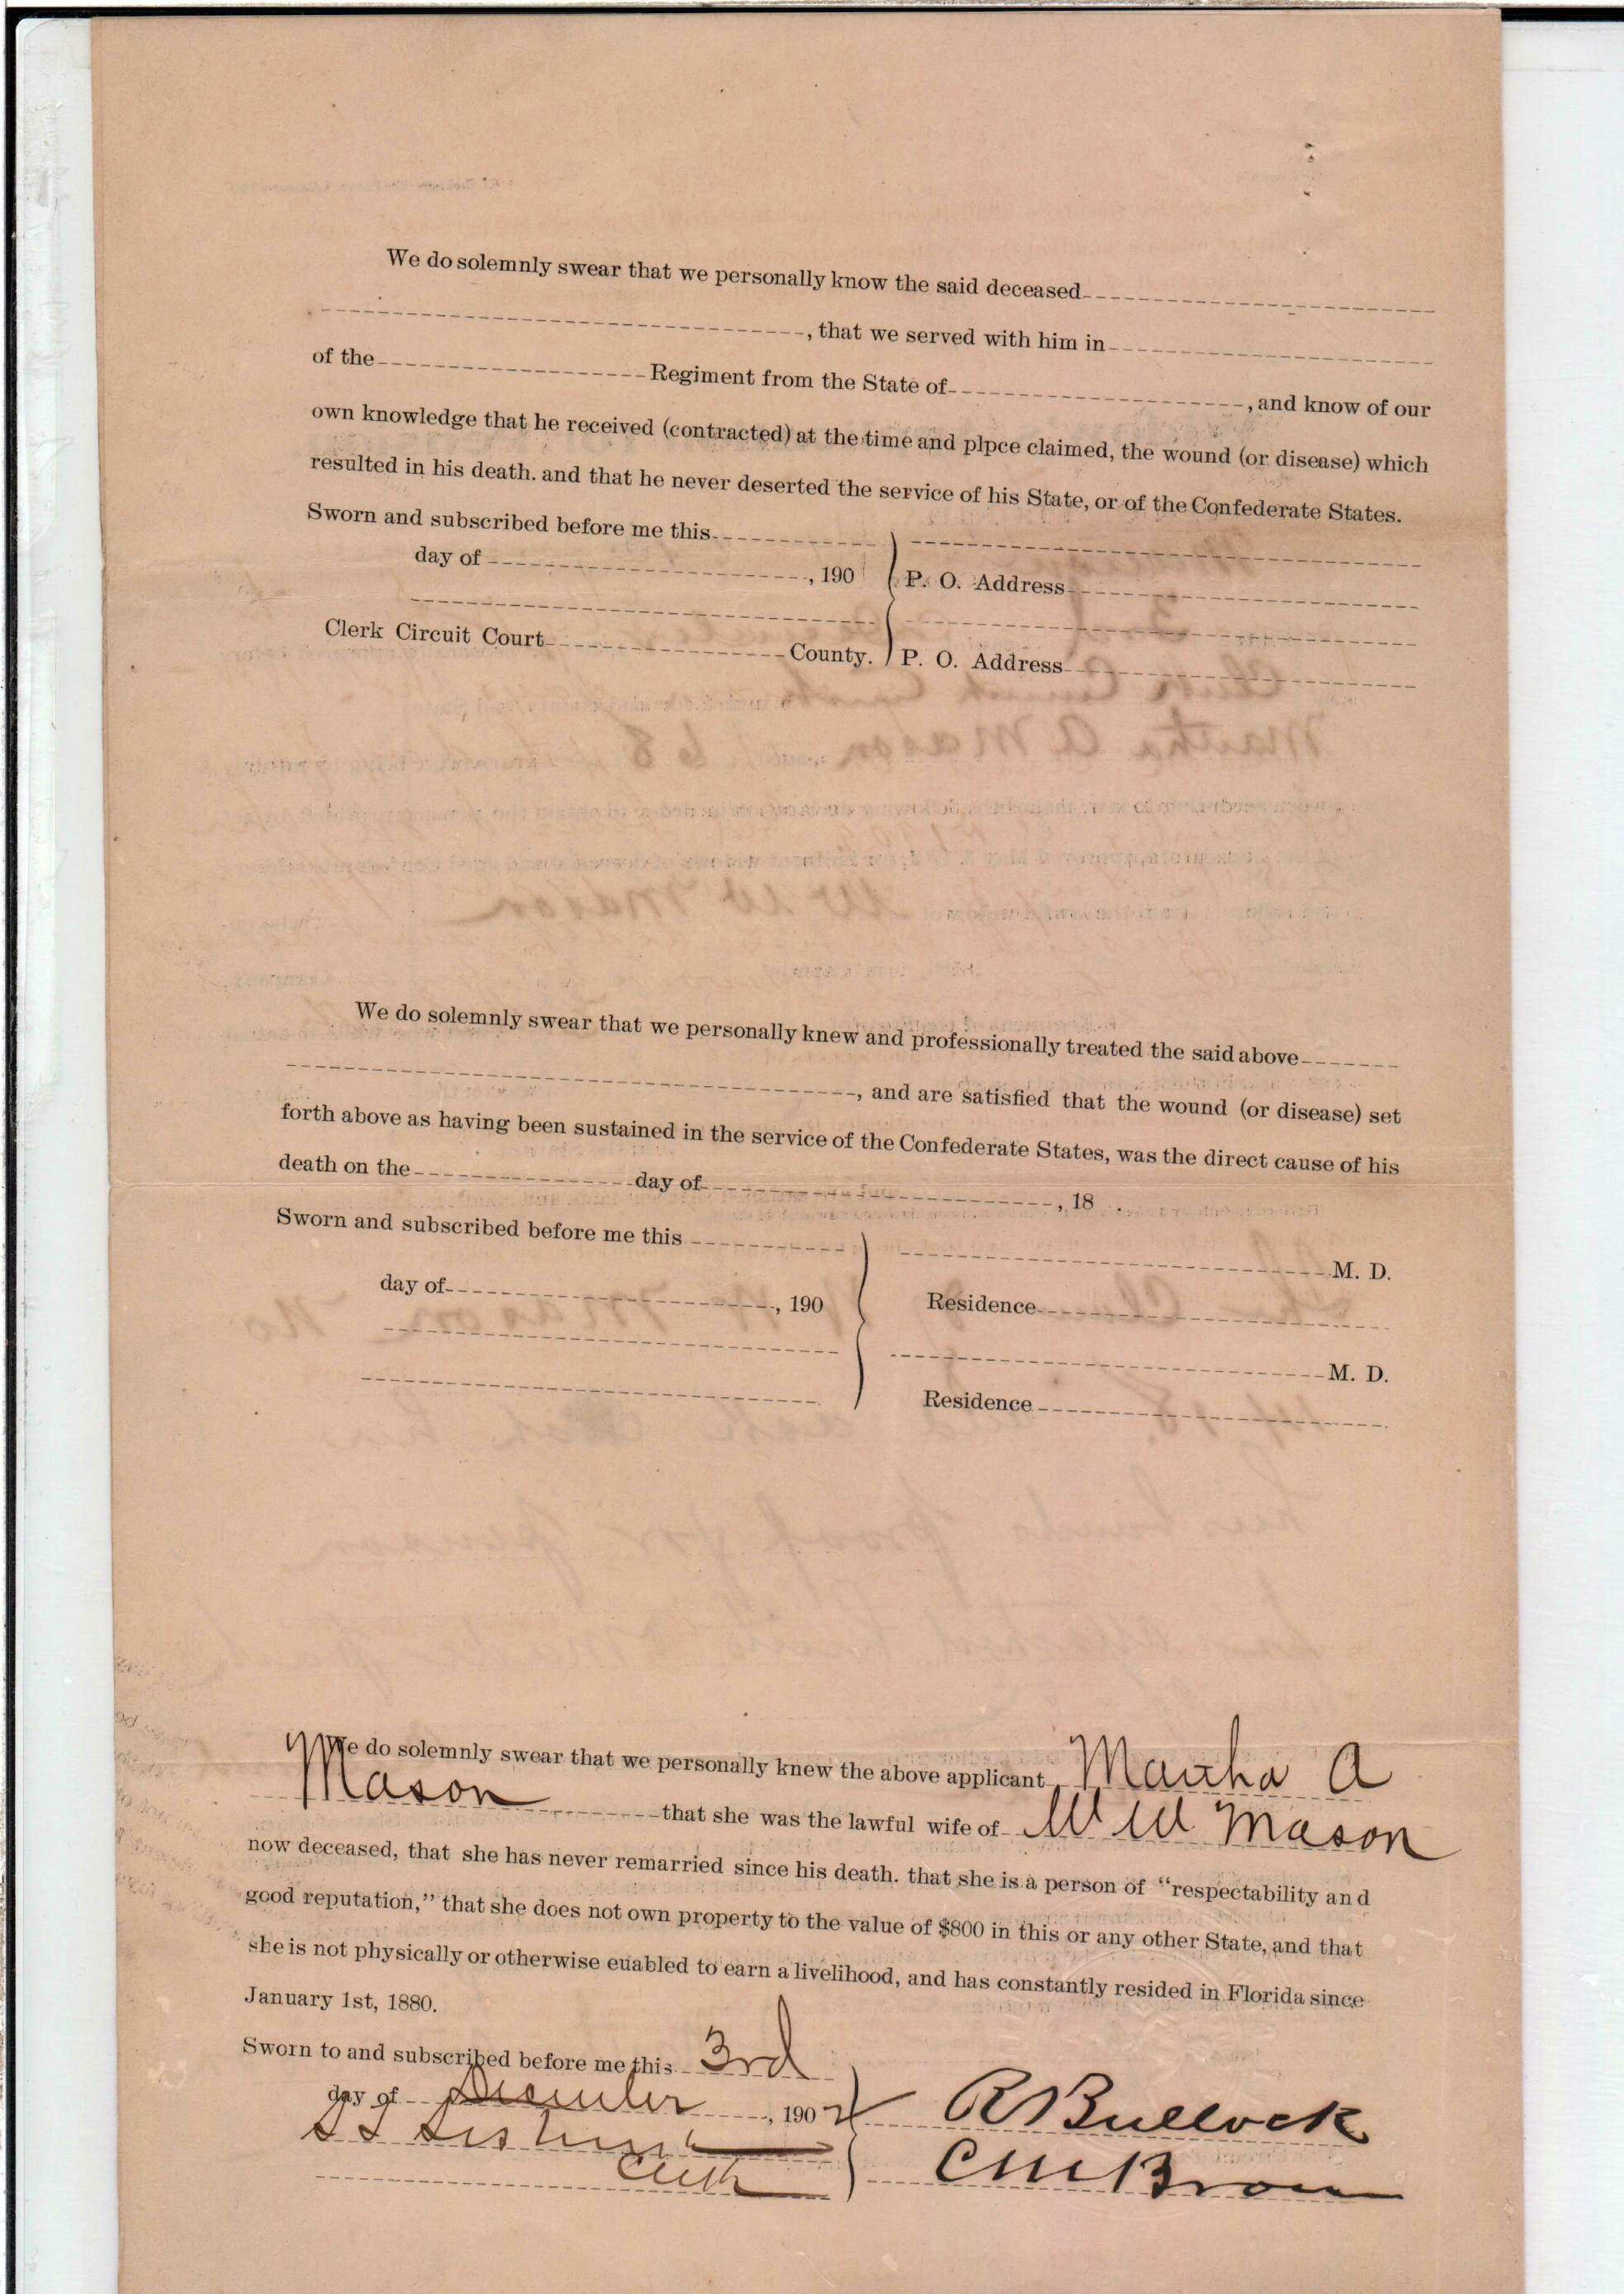 We do solemnly swear that we personally know the said deceased
, that we served with him in
of the Regiment from the State of , and know of our
own knowledge that he received (contracted) at the time and plpce claimed, the wound (or disease) which
resulted in his death. and that he never deserted the service of his State, or of the Confederate States.
Sworn and subscribed before me this
day of , 190 P. O. Address
Clerk Circuit Court County. P. O. Address
We do solemnly swear that we personally knew and professionally treated the said above
, and are satisfied that the wound (or disease) set
forth above as having been sustained in the service of the Confederate States, was the direct cause of his
death on the day of , 18
Sworn and subscribed before me this
M. D.
day of , 190 Residence
M. D.
Residence
We do solemnly swear that we personally knew the above applicant Martha A
Mason that she was the lawful wife of W W Mason
now deceased, that she has never remarried since his death. that she is a person of “respectability and
good reputation,” that she does not own property to the value of $800 in this or any other State, and that
she is not physically or otherwise euabled to earn a livelihood, and has constantly resided in Florida since
January 1st, 1880.
Sworn to and subscribed before me this 3rd
day of December , 1902 R Bullock
Clerk C M Brown